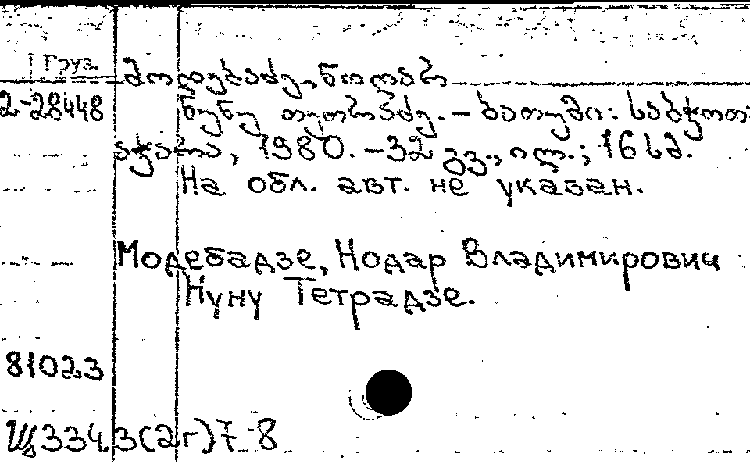 Груз.
მოდებაძე, ნოდარ
2-28448 ნუნუ თეთრაძე. – ბათუმი: საბჭოთა
აჭარა, 1980. – 32 გვ., ილ.; 16 სმ.
На обл. авт. не указан.
Модебадзе, Нодар Владимирович
Нуну Тетрадзе.
81023
Щ334.3(2г)7-8